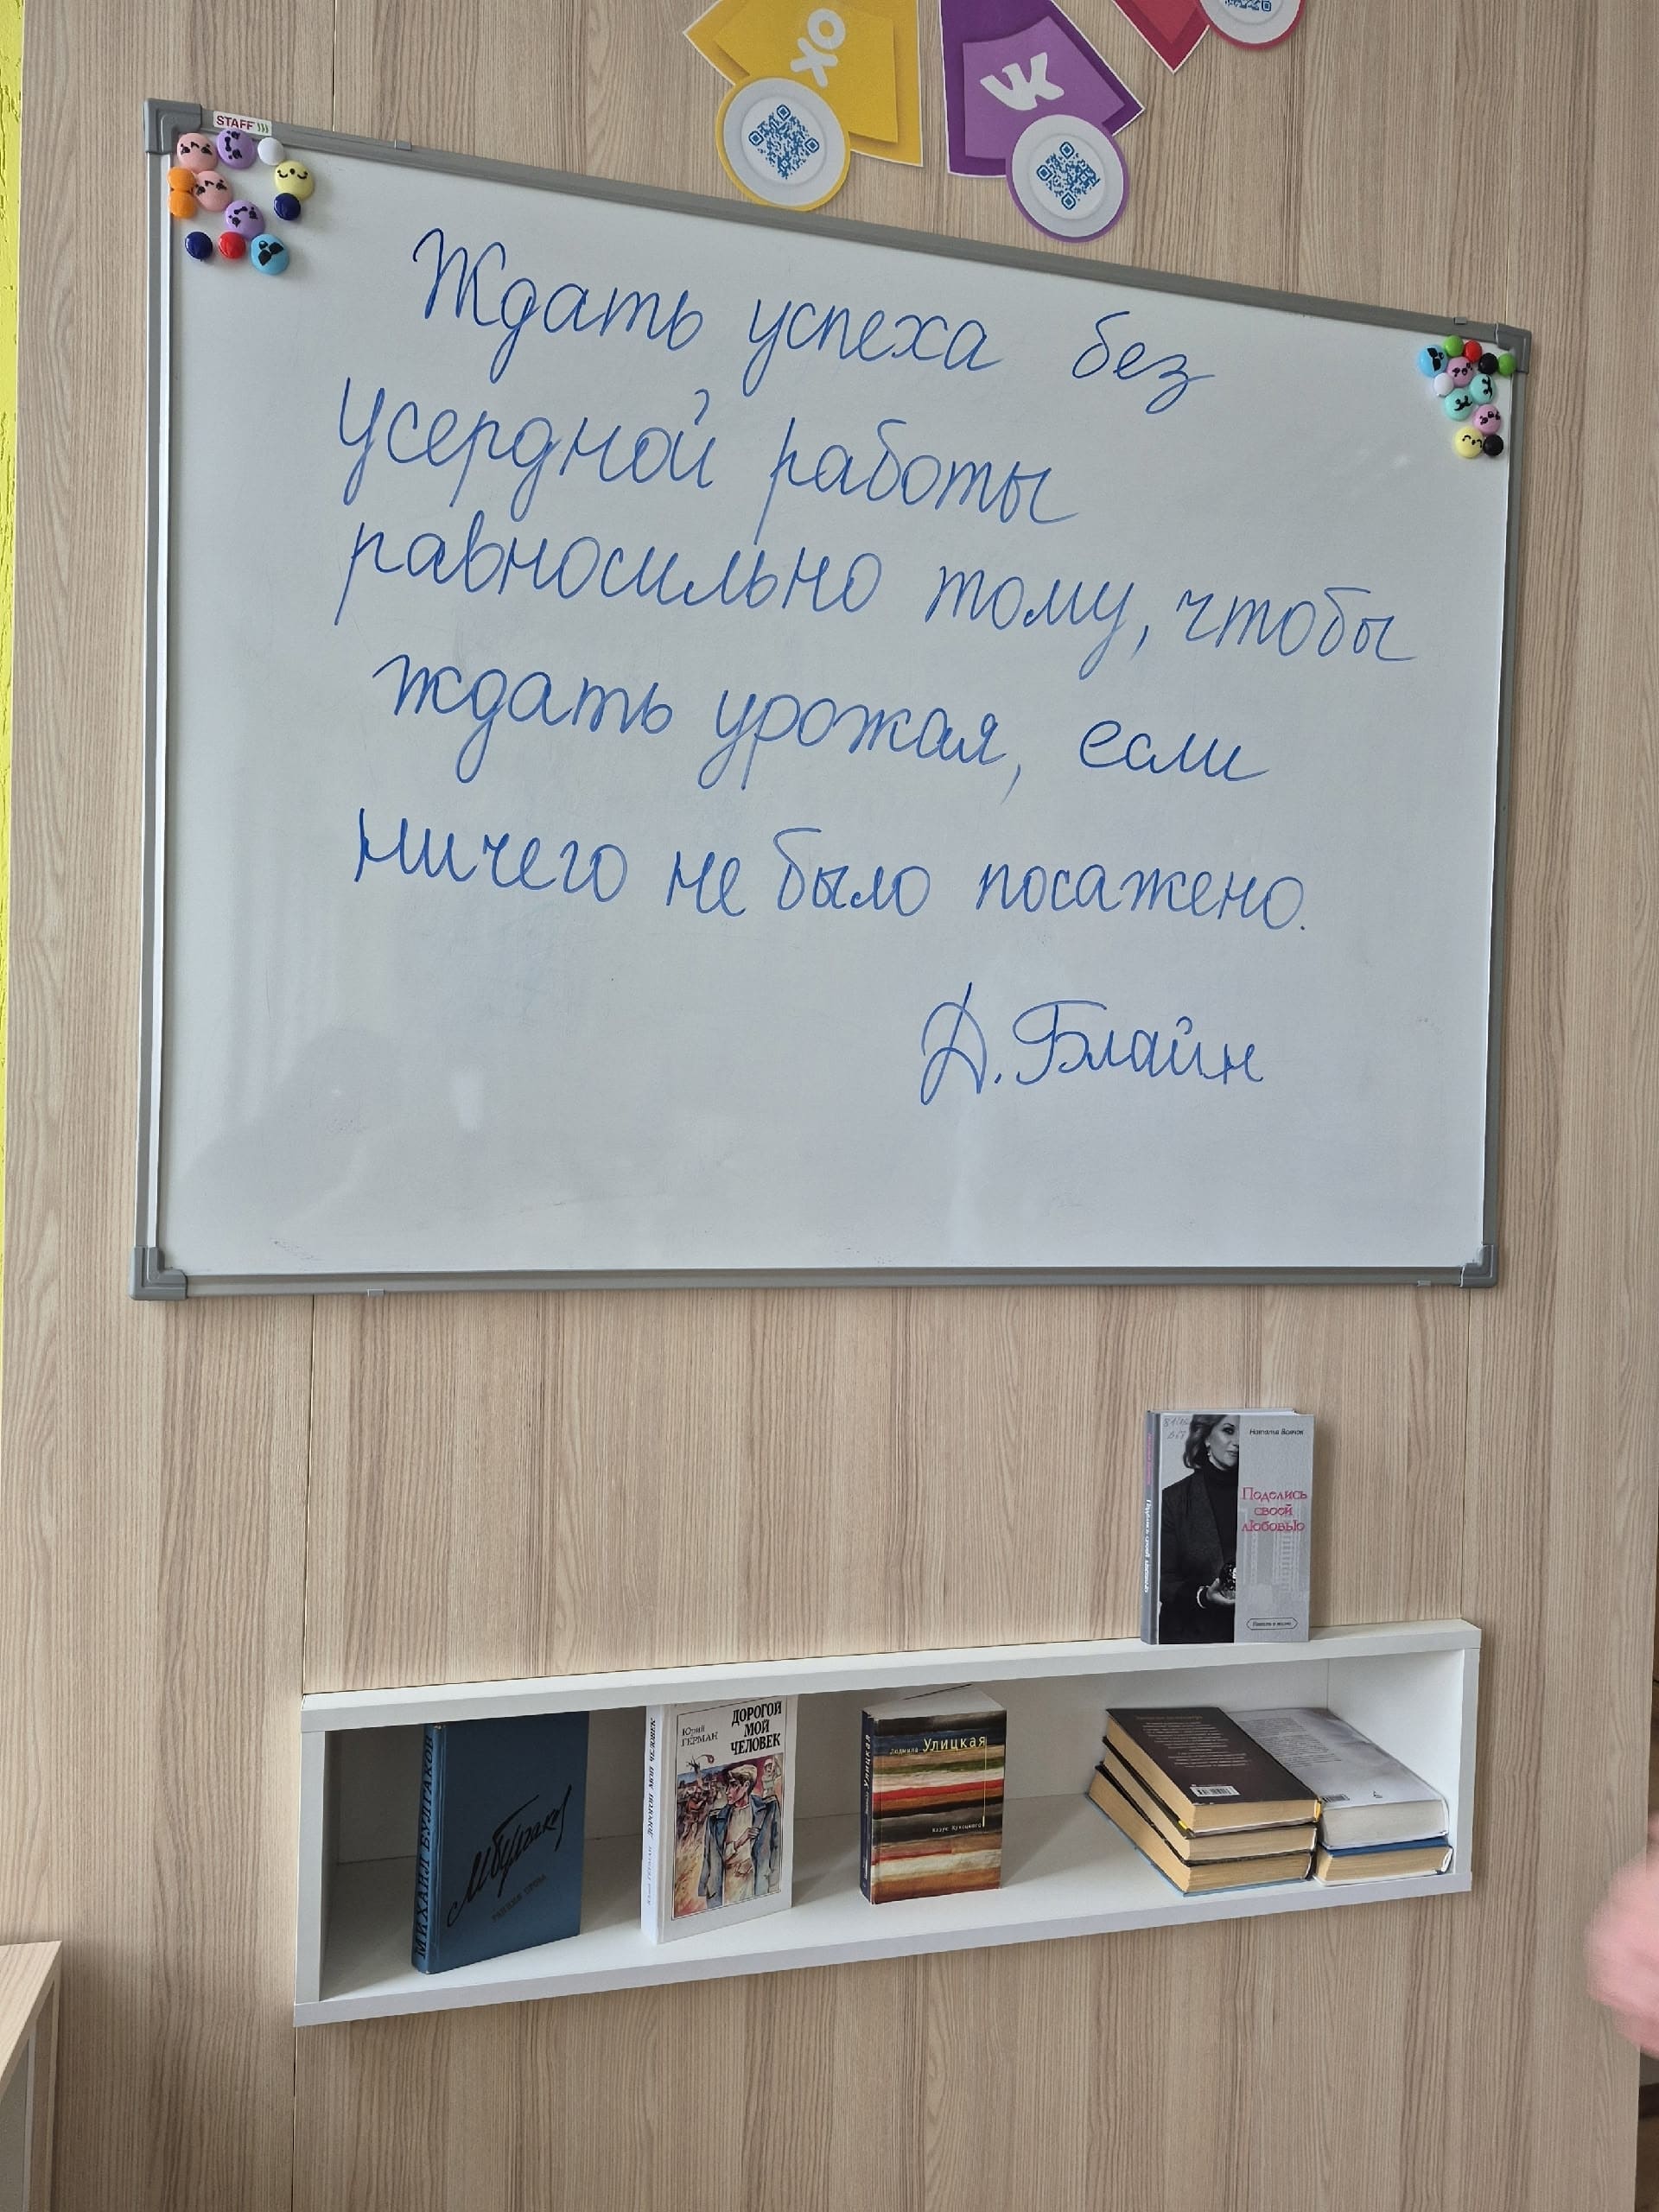 STAFF
Ждать успеха без
усердной работы
равносильно тому, чтобы
ждать урожая, если
ничего не было посажено.
Д. Блайн
Поделись
своей
любовью
МИХАИЛ БУЛГАКОВ
Юрий
ГЕРМАН
ДОРОГОЙ
МОЙ
ЧЕЛОВЕК
Людмила Улицкая
Казус Кукоцкого